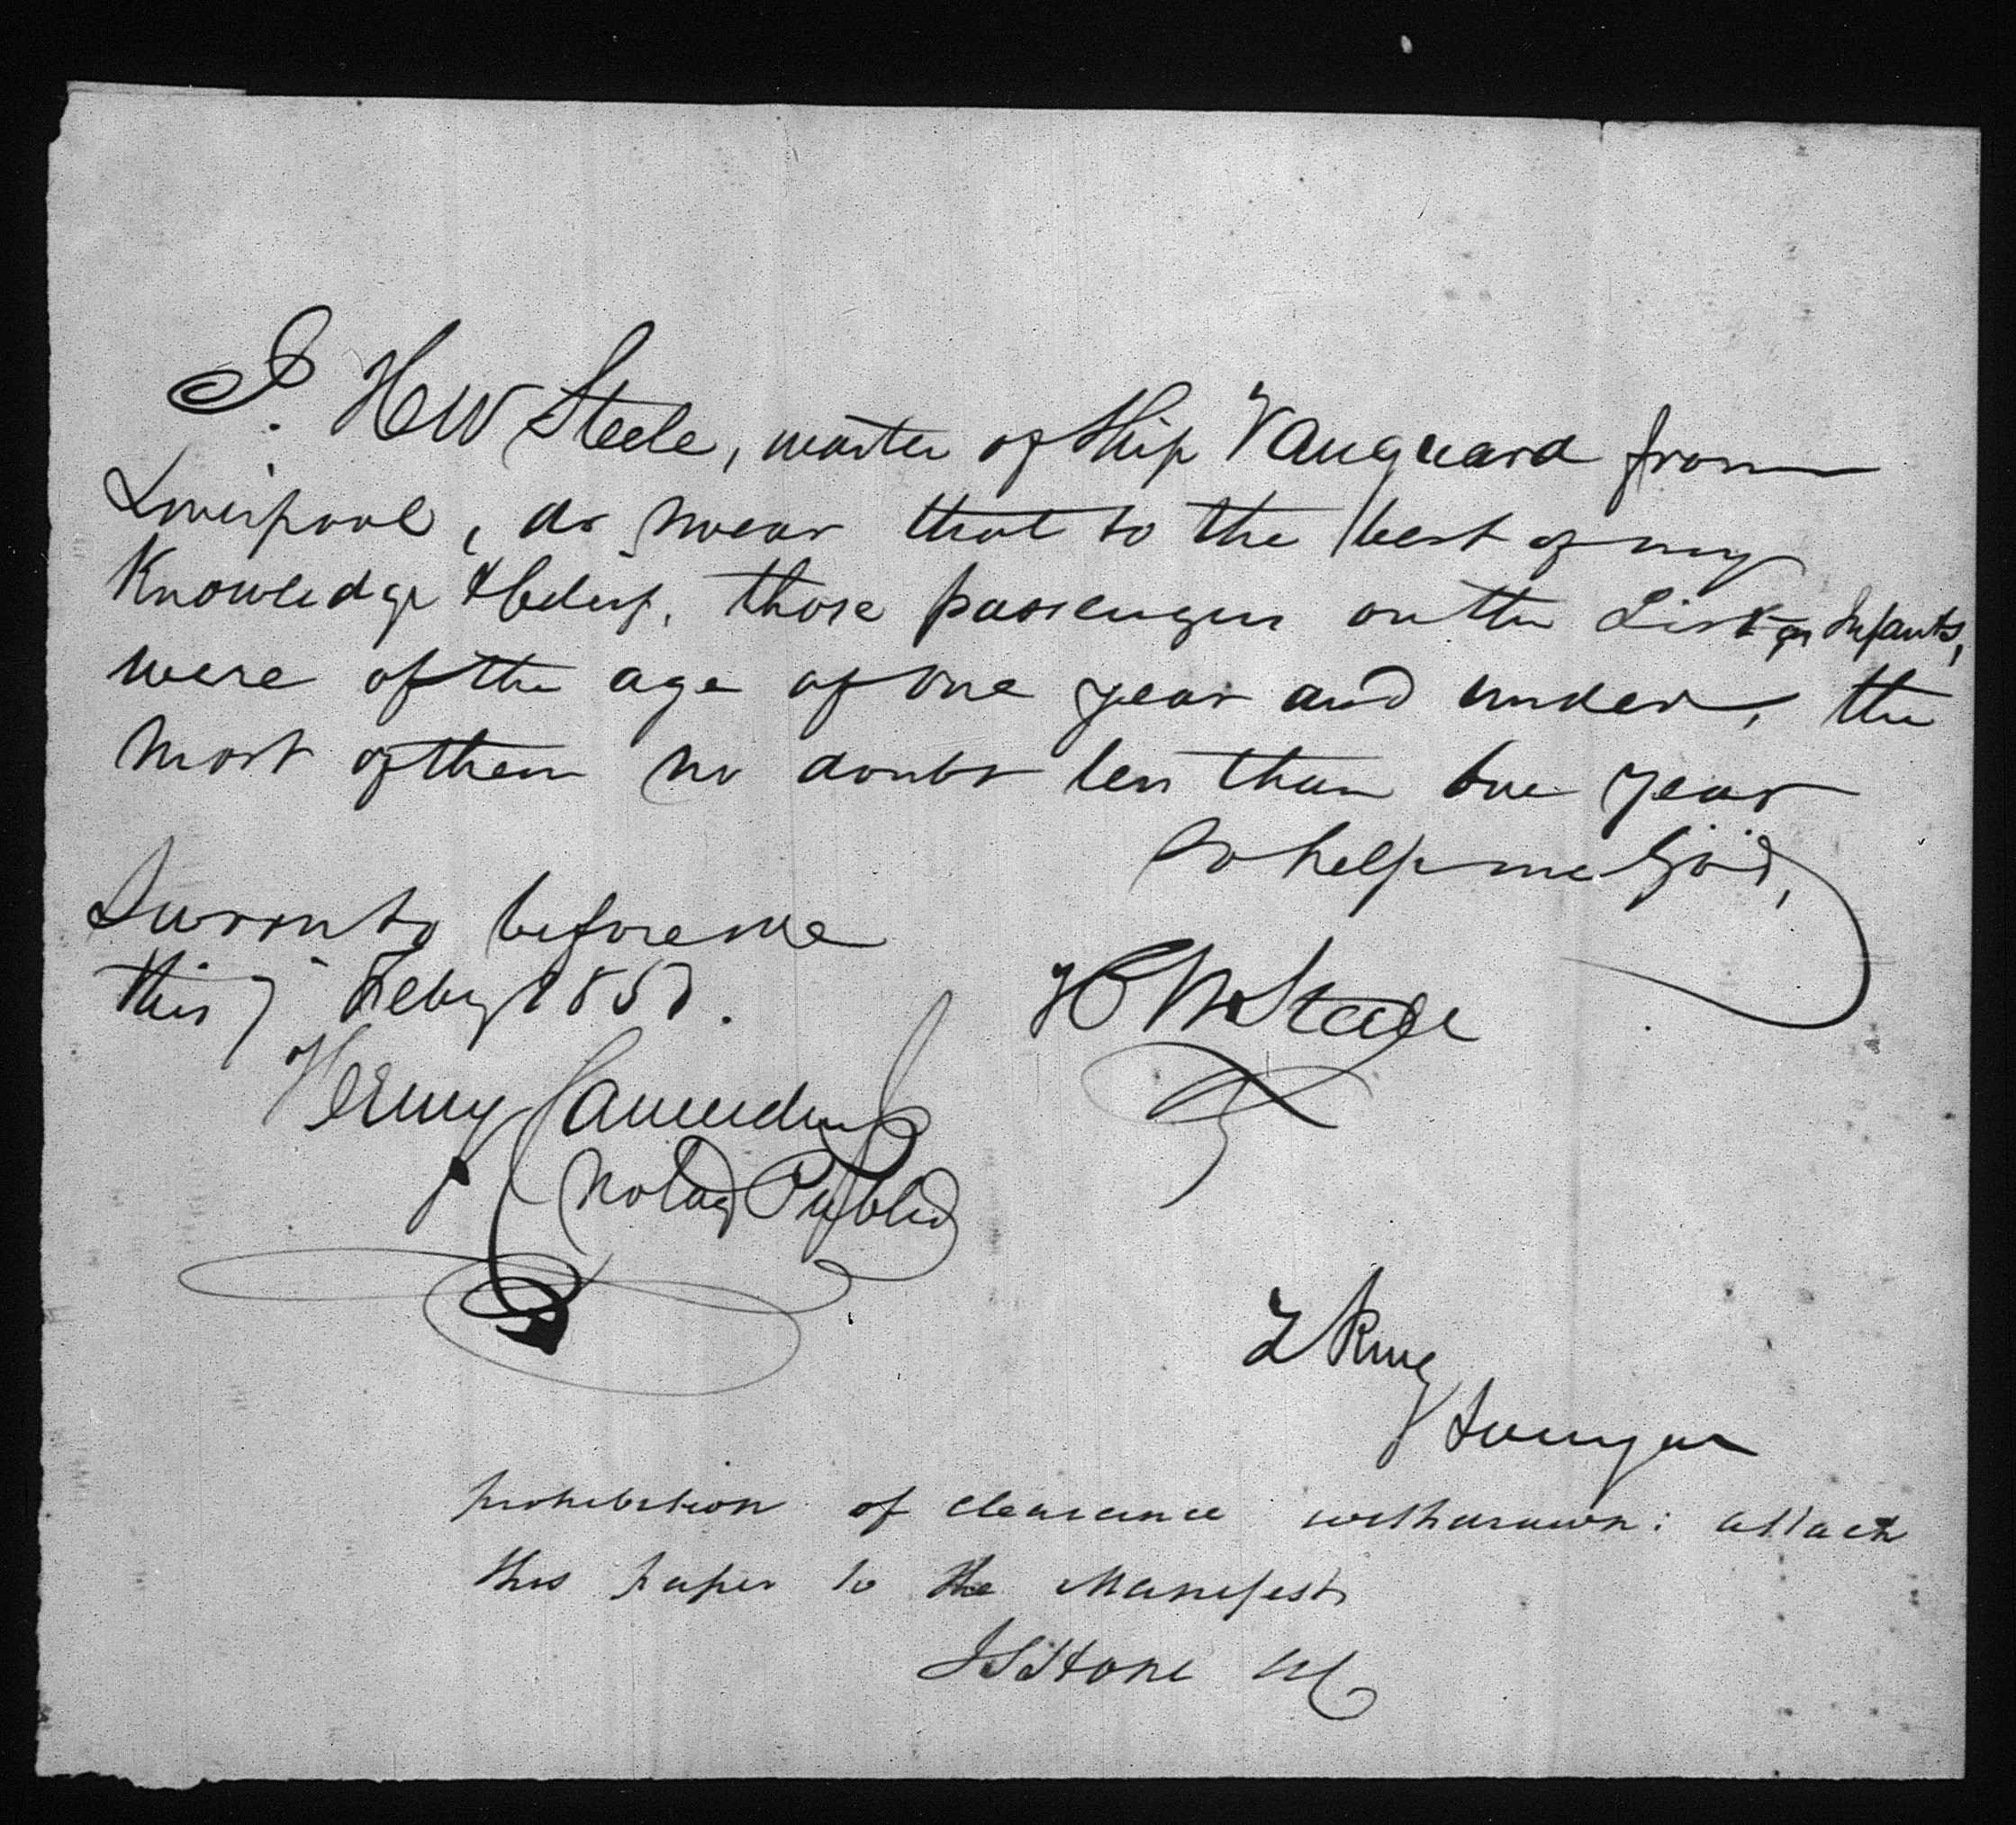 I. H W Steele, master of Ship Vanguard from
Liverpool, do swear that to the best of my
Knowledge & belief, those passengers on the List as Infants,
were of the age of one year and under, the
most of them no doubt less than one year
So help me God,
Sworn to before me
this 7 Feby 1857.
H W Steele
Henry
Notary Public
prohibition of clearance withdrawn: attach
this paper to the Manifest